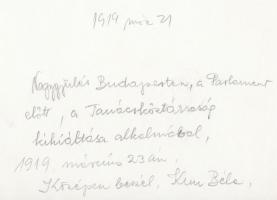 1919 már 21
Nagygyűlés Budapesten, a Parlament
előtt, a Tanácsköztársaság
kikiáltása alkalmából,
1919. március 23 án.
Középen beszél, Kun Béla.